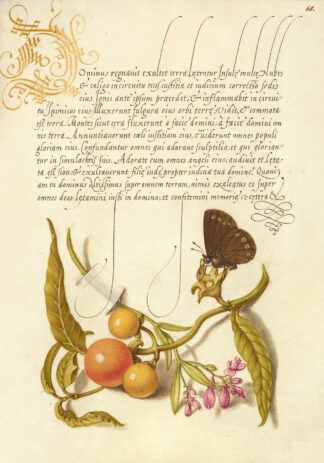 61.
Dominus regnavit exultet terra lætentur Insulę multę. Nubes
& caligo in circuitu eius, iustitia et iudicium correctio sedis
eius. Ignis ante ipsum præcedet, & inflammabit in circui-
tu Inimicos eius. Illuxerunt fulgura eius orbi terrę, Vidit, et commota
est terra. Montes sicut cera fluxerunt à facie domini, à facie domini om
nis terra. Annuntiaverunt cæli iustitiam eius, & viderunt omnes populi
gloriam eius. Confundantur omnes qui adorant sculptilia, et qui glorian-
tur in simulachris suis. Adorate eum omnes angeli eius, audivit et lęta-
ta est sion & exultaverunt filię iudę, propter iudicia tua domine. Quoni-
am tu dominus altissimus super omnem terram, nimis exaltatus es super
omnes deos, lętamini iusti in domino, et confitemini memorię & cetera